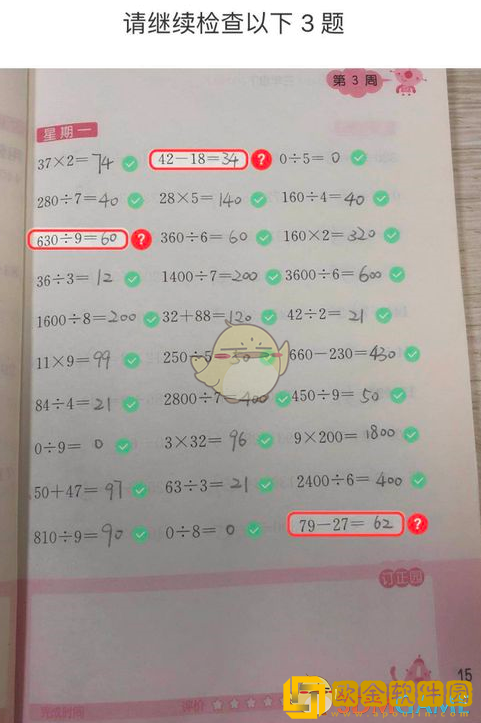 请继续检查以下 3 题
第 3 周
星期一
37×2=74 42-18=34 0÷5=0
280÷7=40 28×5=140 160÷4=40
630÷9=60 360÷6=60 160×2=320
36÷3=12 1400÷7=200 3600÷6=600
1600÷8=200 32+88=120 42÷2=21
11×9=99 250÷5=50 660-230=430
84÷4=21 2800÷7=400 450÷9=50
0÷9=0 3×32=96 9×200=1800
50+47=97 63÷3=21 2400÷6=400
810÷9=90 0÷8=0 79-27=62
订正园
15
完成时间 评价
欧金软件园